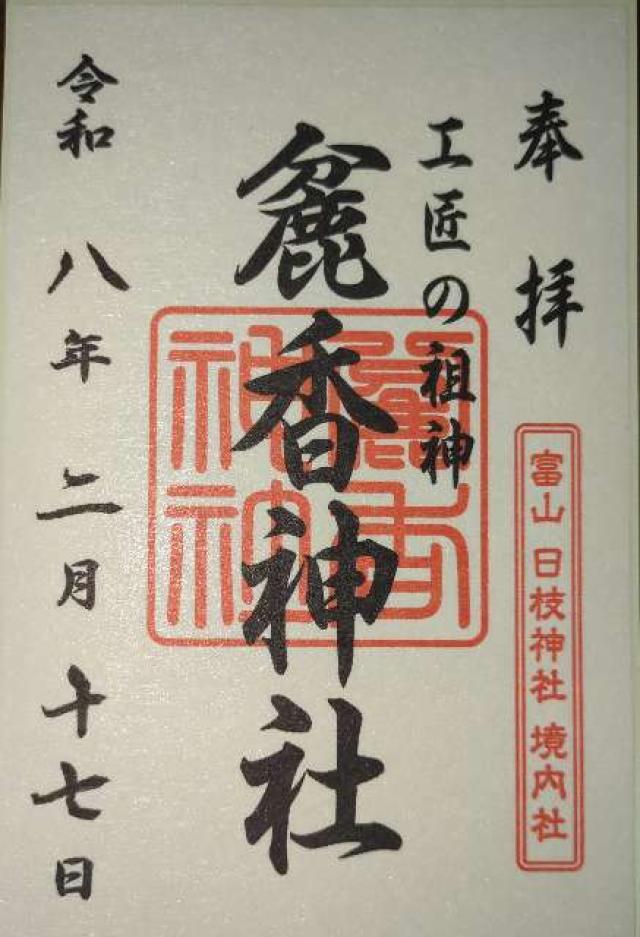 奉拝
富山 日枝神社 境内社
工匠の祖神
麁香神社
令和八年二月十七日